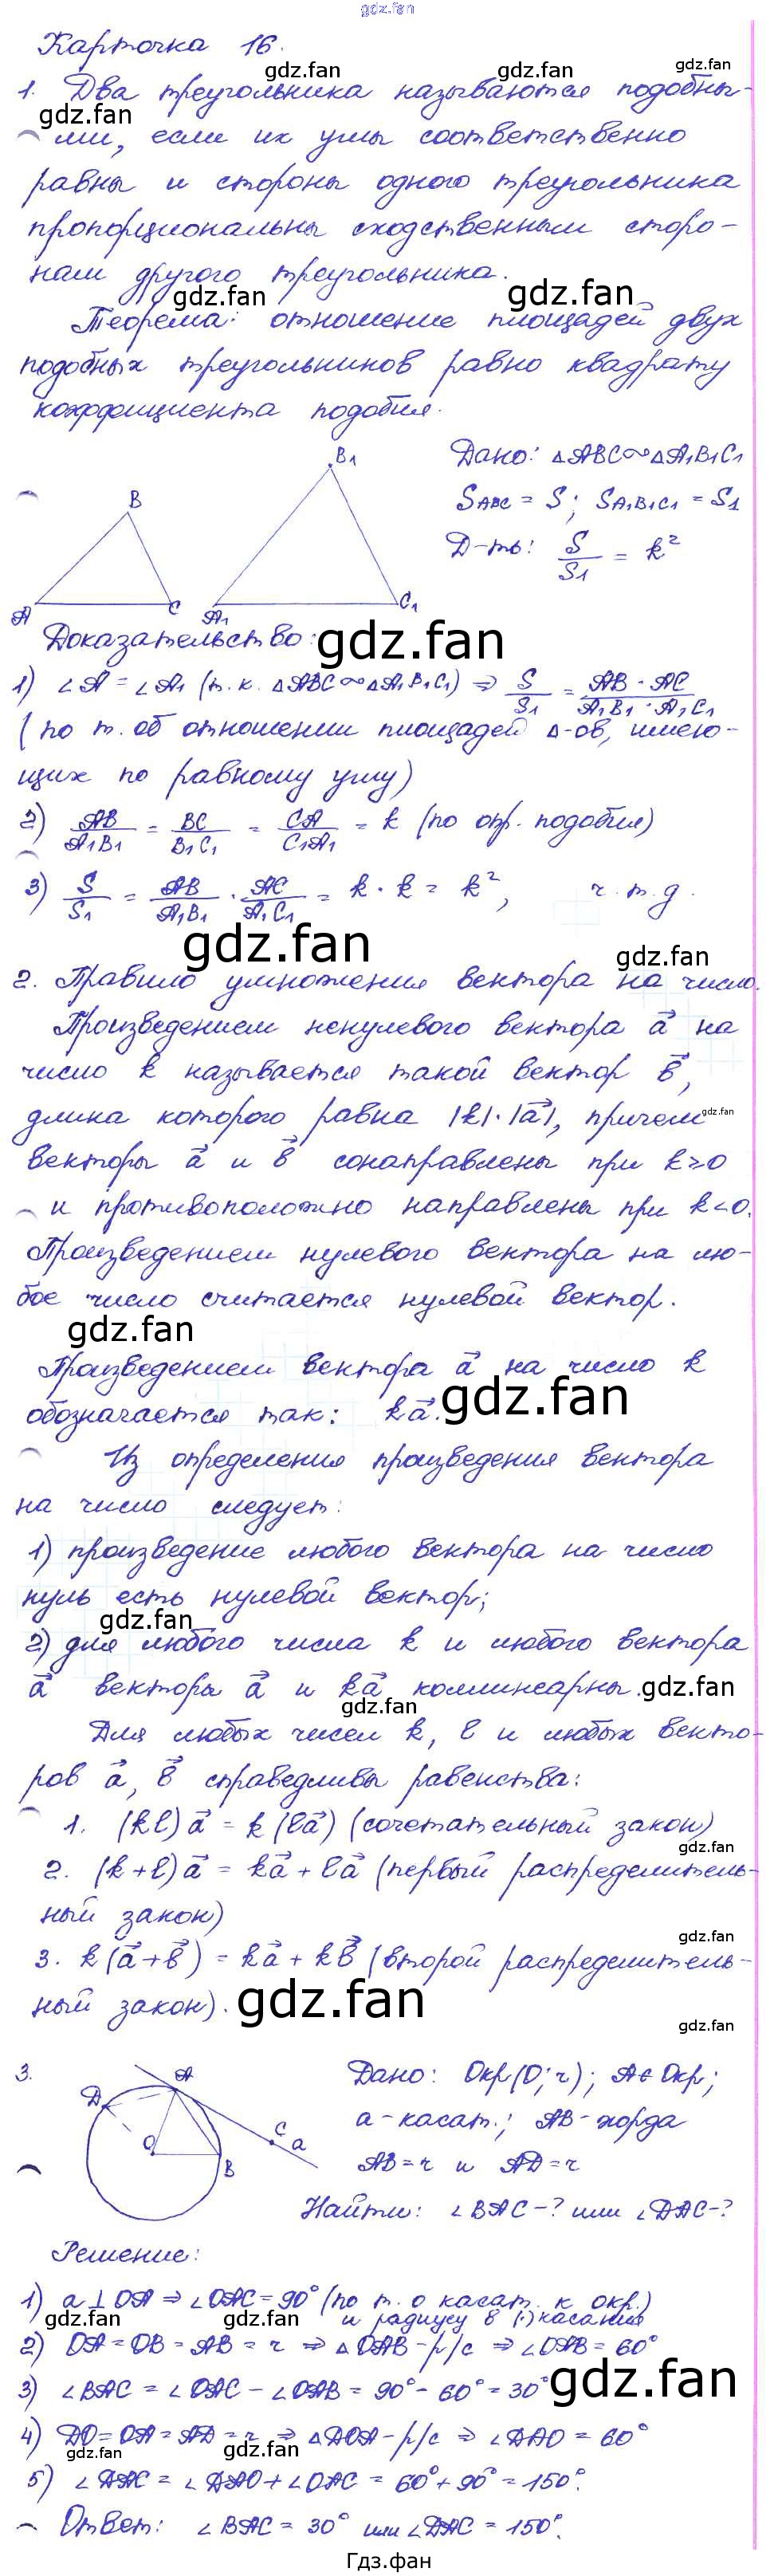 gdz.fan
Карточка 16.
gdz.fan gdz.fan
1. Два треугольника называются подобны-
gdz.fan
ми, если их углы соответственно
равны и стороны одного треугольника
пропорциональны сходственным сторо-
нам другого треугольника.
gdz.fan gdz.fan
Теорема: отношение площадей двух
подобных треугольников равно квадрату
коэффициента подобия.
B B₁ A C A₁ C₁
Дано: △ABC∾△A₁B₁C₁
S_ABC = S; S_A₁B₁C₁ = S₁
Д-ть: S/S₁ = k²
Доказательство:
gdz.fan
1) ∠A = ∠A₁ (т.к. △ABC∾△A₁B₁C₁) ⇒ S/S₁ = AB · AC / A₁B₁ · A₁C₁
(по т. об отношении площадей △-ов, имею-
щих по равному углу)
2) AB/A₁B₁ = BC/B₁C₁ = CA/C₁A₁ = k (по опр. подобия)
3) S/S₁ = AB/A₁B₁ · AC/A₁C₁ = k · k = k², ч.т.д.
gdz.fan gdz.fan
2. Правило умножения вектора на число.
Произведением ненулевого вектора a⃗ на
число k называется такой вектор b⃗,
длина которого равна |k|·|a⃗|, причем
gdz.fan
векторы a⃗ и b⃗ сонаправлены при k≥0
и противоположно направлены при k<0.
Произведением нулевого вектора на лю-
бое число считается нулевой вектор.
gdz.fan
Произведением вектора a⃗ на число k
обозначается так: ka⃗.
gdz.fan
Из определения произведения вектора
на число следует:
1) произведение любого вектора на число
нуль есть нулевой вектор;
gdz.fan
2) для любого числа k и любого вектора
a⃗ векторы a⃗ и ka⃗ коллинеарны.
gdz.fan
gdz.fan
Для любых чисел k, l и любых векто-
ров a⃗, b⃗ справедливы равенства:
1. (kl)a⃗ = k(la⃗) (сочетательный закон)
gdz.fan
2. (k+l)a⃗ = ka⃗ + la⃗ (первый распределитель-
ный закон)
gdz.fan
3. k(a⃗+b⃗) = ka⃗ + kb⃗ (второй распределитель-
ный закон).
gdz.fan
gdz.fan
3.
A D O B C a
Дано: Окр(O;r); A∈Окр;
a-касат.; AB-хорда
AB=r и AD=r
Найти: ∠BAC-? или ∠DAC-?
Решение:
1) a⊥OA ⇒ ∠OAC = 90° (по т. о касат. к окр.)
и радиусу в (·) касания
gdz.fan gdz.fan
2) OA = OB = AB = r ⇒ △OAB-р/с ⇒ ∠OAB = 60°
3) ∠BAC = ∠OAC - ∠OAB = 90° - 60° = 30°
gdz.fan
4) DO=OA=AD=r ⇒ △DOA-р/с ⇒ ∠DAO = 60°
gdz.fan gdz.fan
5) ∠DAC = ∠DAO + ∠OAC = 60° + 90° = 150°.
Ответ: ∠BAC = 30° или ∠DAC = 150°.
Гдз.фан